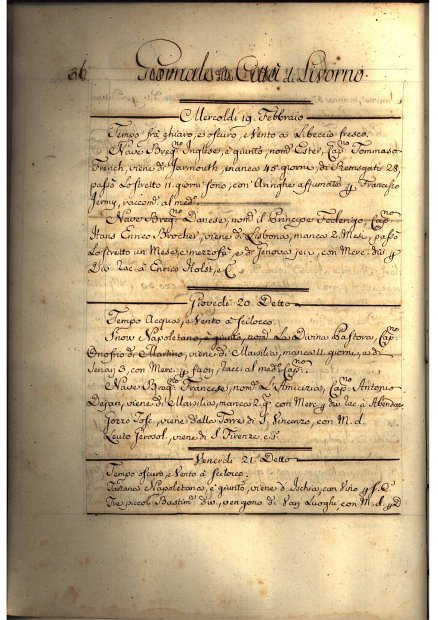 36 Giornale della Città di Livorno.
Mercoldi 19. Febbraio
Tempo frà chiaro, e oscuro, e Vento a Libeccio fresco.
Nave Breq.no Inglese, è giunto, nom.º Ester, Cap.no Tommaso
French, viene di Jarmouth, manca 45. giorni, di Remsgate 28,
passò lo stretto 11. giorni sono, con Aringhe affumate p. Francesco
Jermy, raccom.º al med.º
Nave Breq.no Danese, nom.º il Principe Feclerigo, Cap.no
Hans Enrico Brocher, viene di Lisbona, manca 2. Mesi, passò
lo stretto un Mese, e mezzo fà, e di Genova jeri, con Merc. div. p
Div. rac.ª à Enrico Holst, e C.
Giovedi 20. Detto
Tempo Acqua, e Vento à Scilocco.
Snow Napoletano, è giunto, nom.º La Divina Pastora, Cap.no
Onofrio di Martino, viene di Marsilia, manca 11. giorni, e di
3, con Merc. p racc. al med.º Cap.no
Nave Breq.no Francese, nom.º L'Amicizia, Cap.no Antonio
Dejan, viene di Marsilia, manca 2. con Merc. p div. rac.
Gozzo Tosc. viene dalla Torre di S. Vincenzo, con M. d.
Leuto Jerosol. viene di S. Firenze, c. S.
Venerdi 21. Detto
Tempo oscuro, e Vento à Scilocco.
Tartana Napoletana, è giunta, viene d'Ischia, con Vino, p
Tre piccoli Bastim.ti div. vengono di Varj Luoghi, con M. d. p D